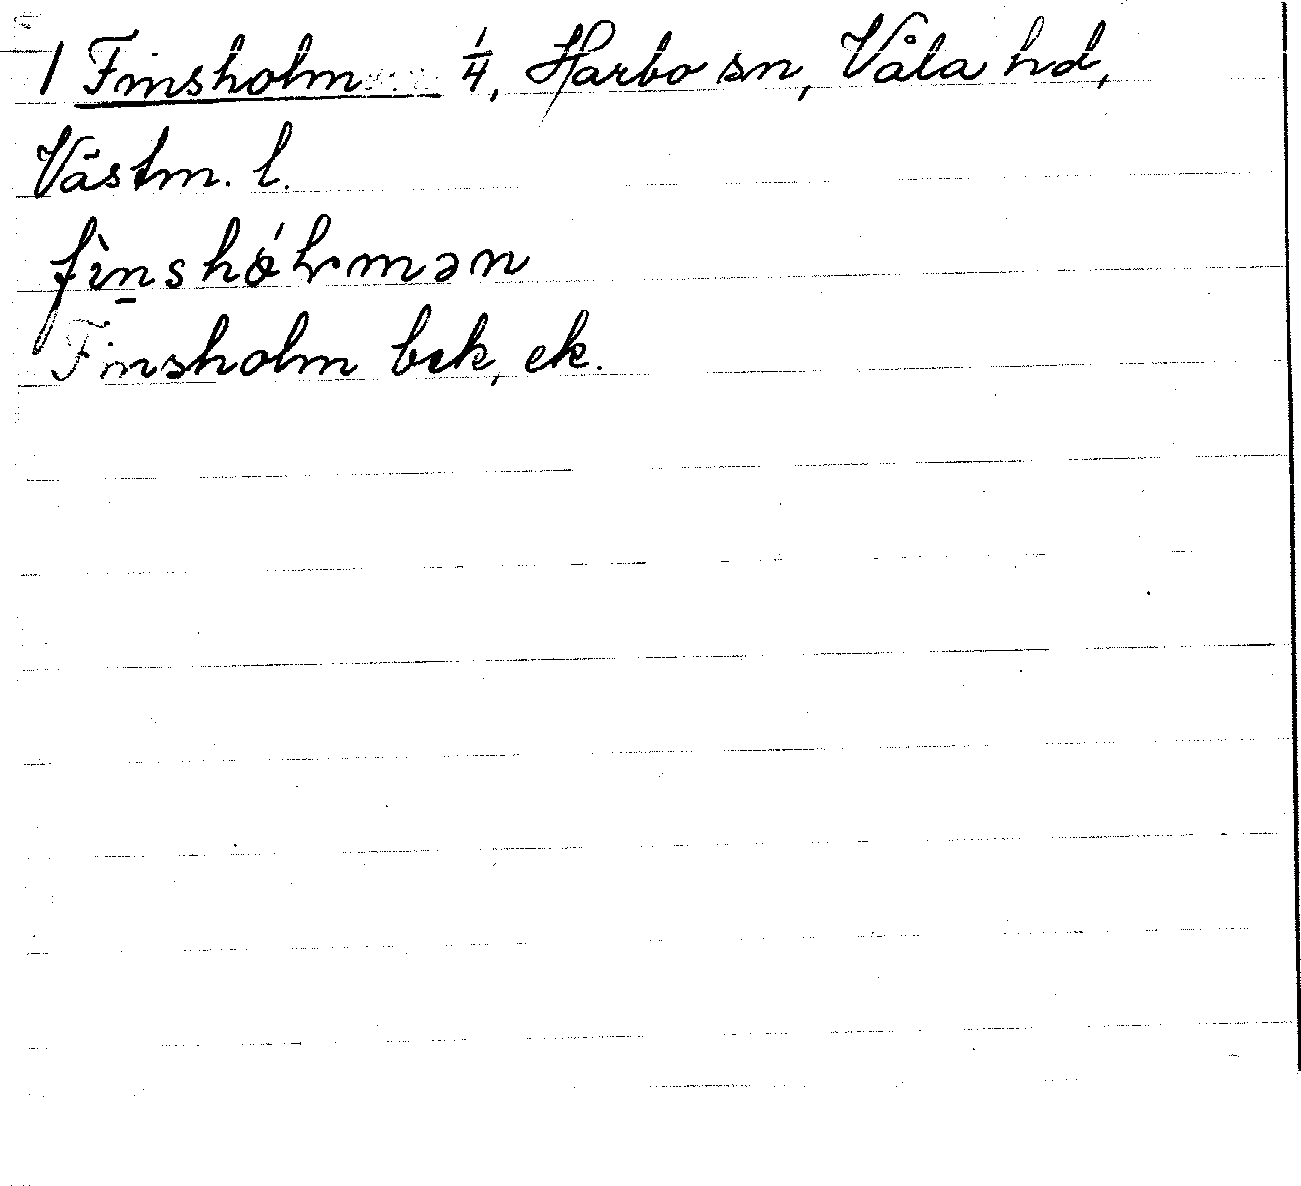 1 Finsholm 1/4, Harbo sn, Våla hd,
Västm. l.
fìn̠shɷ́lmən
Finsholm bek, ek.